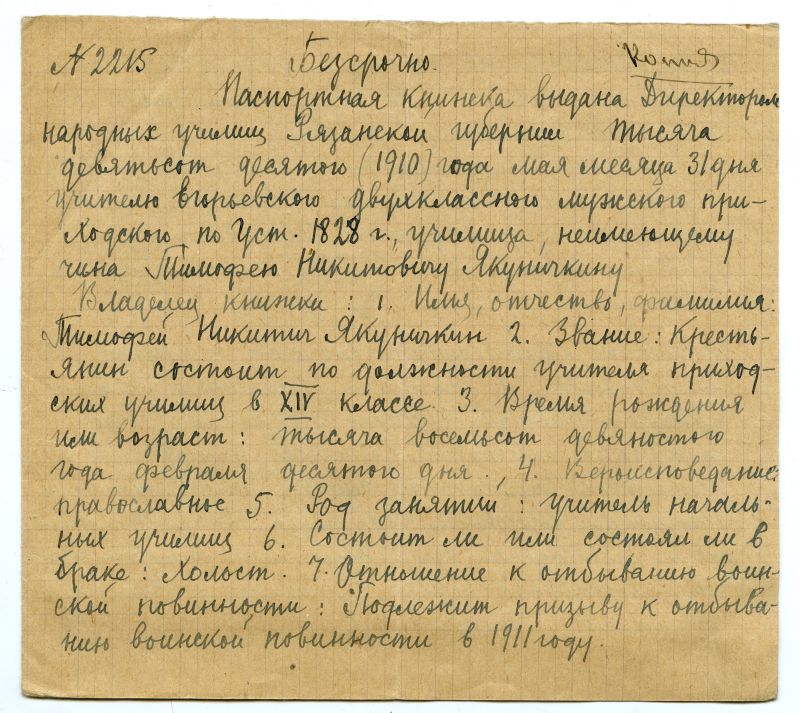 № 2215 Безсрочно. Копия
Паспортная книжка выдана Директором
народных училищ Рязанской губернии тысяча
девятьсот десятого (1910) года мая месяца 31 дня
учителю Егорьевского двухклассного мужского при-
ходского, по Уст. 1828 г., училища, неимеющему
чина Тимофею Никитовичу Якуничкину
Владелец книжки: 1. Имя, отчество, фамилия:
Тимофей Никитич Якуничкин 2. Звание: Кресть-
янин состоит по должности учителя приход-
ских училищ в XIV классе 3. Время рождения
или возраст: тысяча восемьсот девяностого
года февраля десятого дня., 4. Вероисповедание:
православное 5. Род занятий: учитель началь-
ных училищ 6. Состоит ли или состоял ли в
браке: Холост. 7. Отношение к отбыванию воин-
ской повинности: Подлежит призыву к отбыва-
нию воинской повинности в 1911 году.